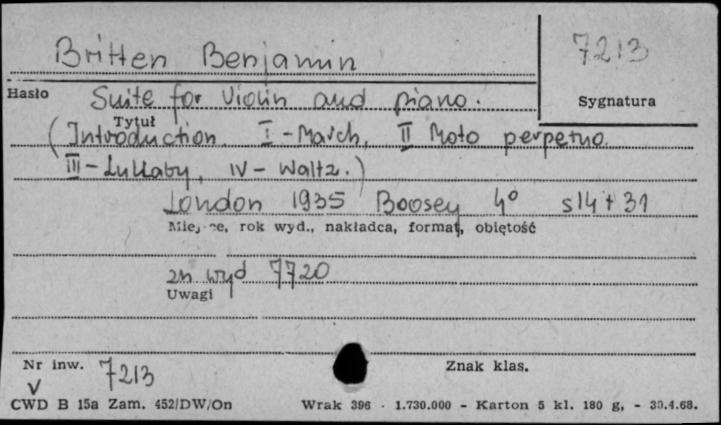 Britten Benjamin
7213
Hasło
Suite for violin and piano.
Sygnatura
Tytuł
(Introduction. I - March, II Moto perpetuo.
III - Lullaby, IV - Waltz.)
London 1935 Boosey 4° s 14 + 31
Miejsce, rok wyd., nakładca, format, objętość
zn wyd 7720
Uwagi
Nr inw. 7213
Znak klas.
V
CWD B 15a Zam. 452/DW/On Wrak 396 - 1.730.000 - Karton 5 kl. 180 g, - 30.4.68.